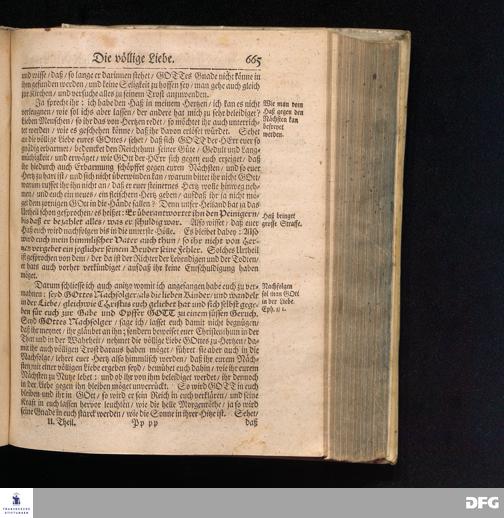 Die völlige Liebe. 665
und wisse / daß / so lange er darinnen stehet / GOTTes Gnade nicht könne in
ihm gefunden werden / und keine Seligkeit zu hoffen sey / man gehe auch gleich
zur Kirchen / und versuche alles zu seinem Trost anzuwenden.
Ja sprecht ihr: ich habe den Haß in meinem Hertzen / ich kan es nicht
verleugnen / wie sol ichs aber lassen / der andere hat mich zu sehr beleidiget?
Lieben Menschen / so ihr das von Hertzen redet / so möchtet ihr auch unterrich-
tet werden / wie es geschehen könne / daß ihr davon erlöset würdet. Sehet
an die völlige Liebe eures GOttes / sehet / daß sich GOTT der HErr euer so
gnädig erbarmet / bedencket den Reichthum seiner Güte / Gedult und Lang-
müthigkeit / und erweget / wie GOtt der HErr sich gegen euch erzeiget / daß
ihr hiedurch auch Erbarmung schöpffet gegen euren Nächsten / und so euer
Hertz zu hart ist / und sich nicht überwinden kan / warum bittet ihr nicht GOtt /
warum ruffet ihr ihn nicht an / daß er euer steinernes Hertz wolle hinweg neh-
men / und euch ein neues / ein fleischern Hertz geben / auf daß ihr ja nicht mö-
get dem zornigen GOtt in die Hände fallen? Denn unser Heiland hat ja das
Urtheil schon gesprochen / es heisset: Er überantwortet ihn den Peinigern /
bis daß er bezahlet alles / was er schuldig war. Also wisset / daß euer
Haß euch wird nachfolgen bis in die unterste Hölle. Es bleibet dabey: Also
wird euch mein himmlischer Vater auch thun / so ihr nicht von Her-
tzen vergebet ein jeglicher seinem Bruder seine Fehler. Solches Urtheil
ist gesprochen von dem / der da ist der Richter der Lebendigen und der Todten /
er hats auch vorher verkündiget / auf daß ihr keine Entschuldigung haben
möget.
Darum schliesse ich auch anitzo womit ich angefangen habe euch zu ver-
mahnen: seyd GOttes Nachfolger / als die lieben Kinder / und wandelt
in der Liebe / gleichwie Christus euch geliebet hat und sich selbst gege-
ben für euch zur Gabe und Opffer GOTT zu einem süssen Geruch.
Seyd GOttes Nachfolger / sage ich / lasset euch damit nicht begnügen /
daß ihr meynet / ihr gläubet an ihn; sondern beweiset euer Christenthum in der
That und in der Wahrheit / nehmet die völlige Liebe GOttes zu Hertzen / da-
mit ihr auch völligen Trost daraus haben möget / führet sie aber auch in die
Nachfolge / lehret euer Hertz also himmlisch werden / daß ihr eurem Näch-
sten mit einer völligen Liebe ergeben seyd / bemühet euch dahin / wie ihr eurem
Nächsten zu Nutze lebet: und ob ihr von ihm beleidiget werdet / ihr dennoch
in der Liebe gegen ihn bleiben möget unverrückt. So wird GOTT in euch
bleiben und ihr in GOtt / so wird er sein Reich in euch verklären / und seine
Kraft in euch lassen hervor leuchten / wie die helle Morgenröthe / ja so wird
seine Gnade in euch starck werden / wie die Sonne in ihrer Hitze ist. Sehet /
II. Theil. Pp pp daß
Wie man vom
Haß gegen den
Nächsten kan
befreyet
werden.
Haß bringet
grosse Straffe.
Nachfolgen
sol man GOtt
in der Liebe.
Eph. 5/ 1.
FRANCKESCHE
STIFTUNGEN
DFG